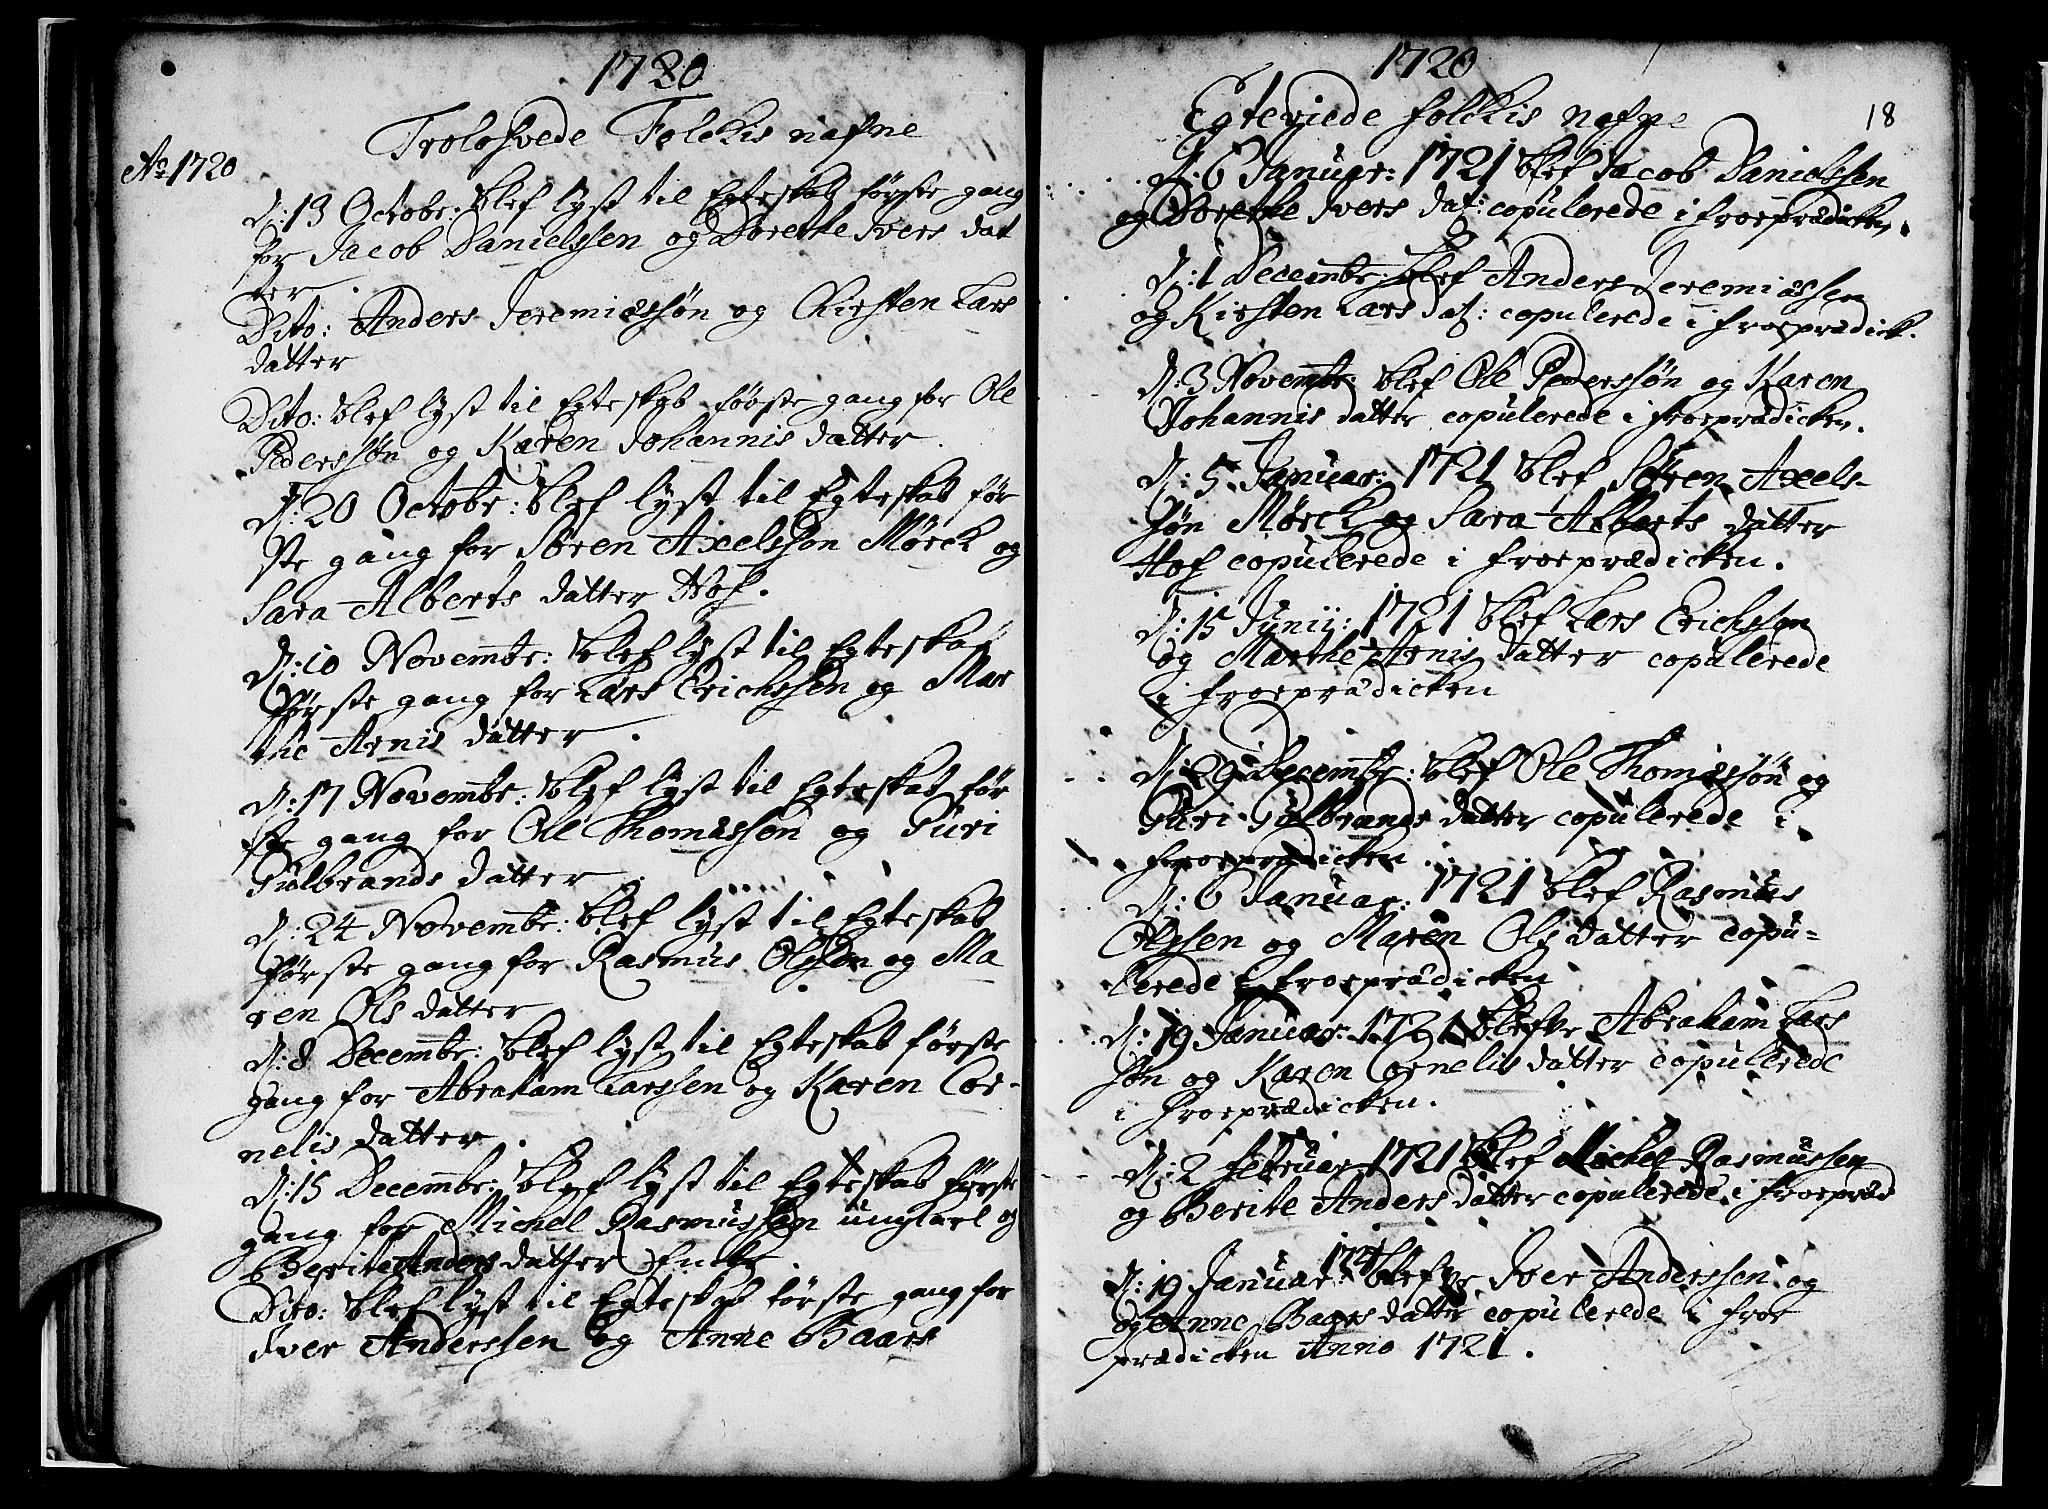 1720
Trolofvede Folckis nafne
Ao 1720
D: 13 Octobr: blef lyst til Egteskab første gang
for Jacob Danielssen og Dorethe Ivers dat
ter.
Dito: Anders Jeremiæssøn og Kirsten Lars
datter
Dito: blef lyst til Egteskab første gang for Ole
Pederssøn og Karen Johannis datter.
D: 20 Octobr: blef lyst til Egteskab før
ste gang for Søren Axelssøn Mørck og
Sara Alberts datter Hof.
D: 10 Novembr: blef lyst til Egteskab
første gang for Lars Erichssen og Mar
the Arnis datter.
D: 17 Novembr: blef lyst til Egteskab før
ste gang for Ole Thomassøn og Guri
Gulbrands datter.
D: 24 Novembr: blef lyst til Egteskab
første gang for Rasmus Olssøn og Ma
ren Ols datter
D: 8 Decembr: blef lyst til Egteskab første
gang for Abraham Larssen og Karen Cor-
nelis datter.
D: 15 Decembr: blef lyst til Egteskab første
gang for Michel Rasmussen ungkarl og
Berite Anders datter Encke.
Dito: blef lyst til Egteskab første gang for
Iver Anderssen og Anne Baars
1720
Egteviede folckis nafne
18
D: 6 Januar: 1721 blef Jacob Danielssen
og Dorethe Ivers dat: copulerede i froeprædicken.
D: 1 Decembr: blef Anders Jeremiassen
og Kirsten Lars dat: copulerede i froeprædick.
D: 3 Novembr: blef Ole Pederssøn og Karen
Johannis datter copulerede i froeprædicken.
D: 5 Januar: 1721 blef Søren Axels-
søn Mørck og Sara Alberts datter
Hof copulerede i froeprædicken.
D: 15 Junij: 1721 blef Lars Erichssen
og Marthe Arnis datter copulerede
i froeprædicken
D: 29 Decembr: blef Ole Thomassøn og
Guri Gulbrands datter copulerede i
froeprædicken.
D: 6 Januar: 1721 blef Rasmus
Olssen og Maren Ols datter copu-
lerede i froeprædicken
D: 19 Januar: 1721 blefve Abraham Lars
søn og Karen Cornelis datter copulerede
i froeprædicken.
D: 2 februar 1721 blef Michel Rasmussen
og Berite Anders datter copulerede i froepræd
D: 19 Januar: 1721 blefve Iver Anderssen og
og Anne Baars datter copulerede i froe
prædicken Anno 1721.